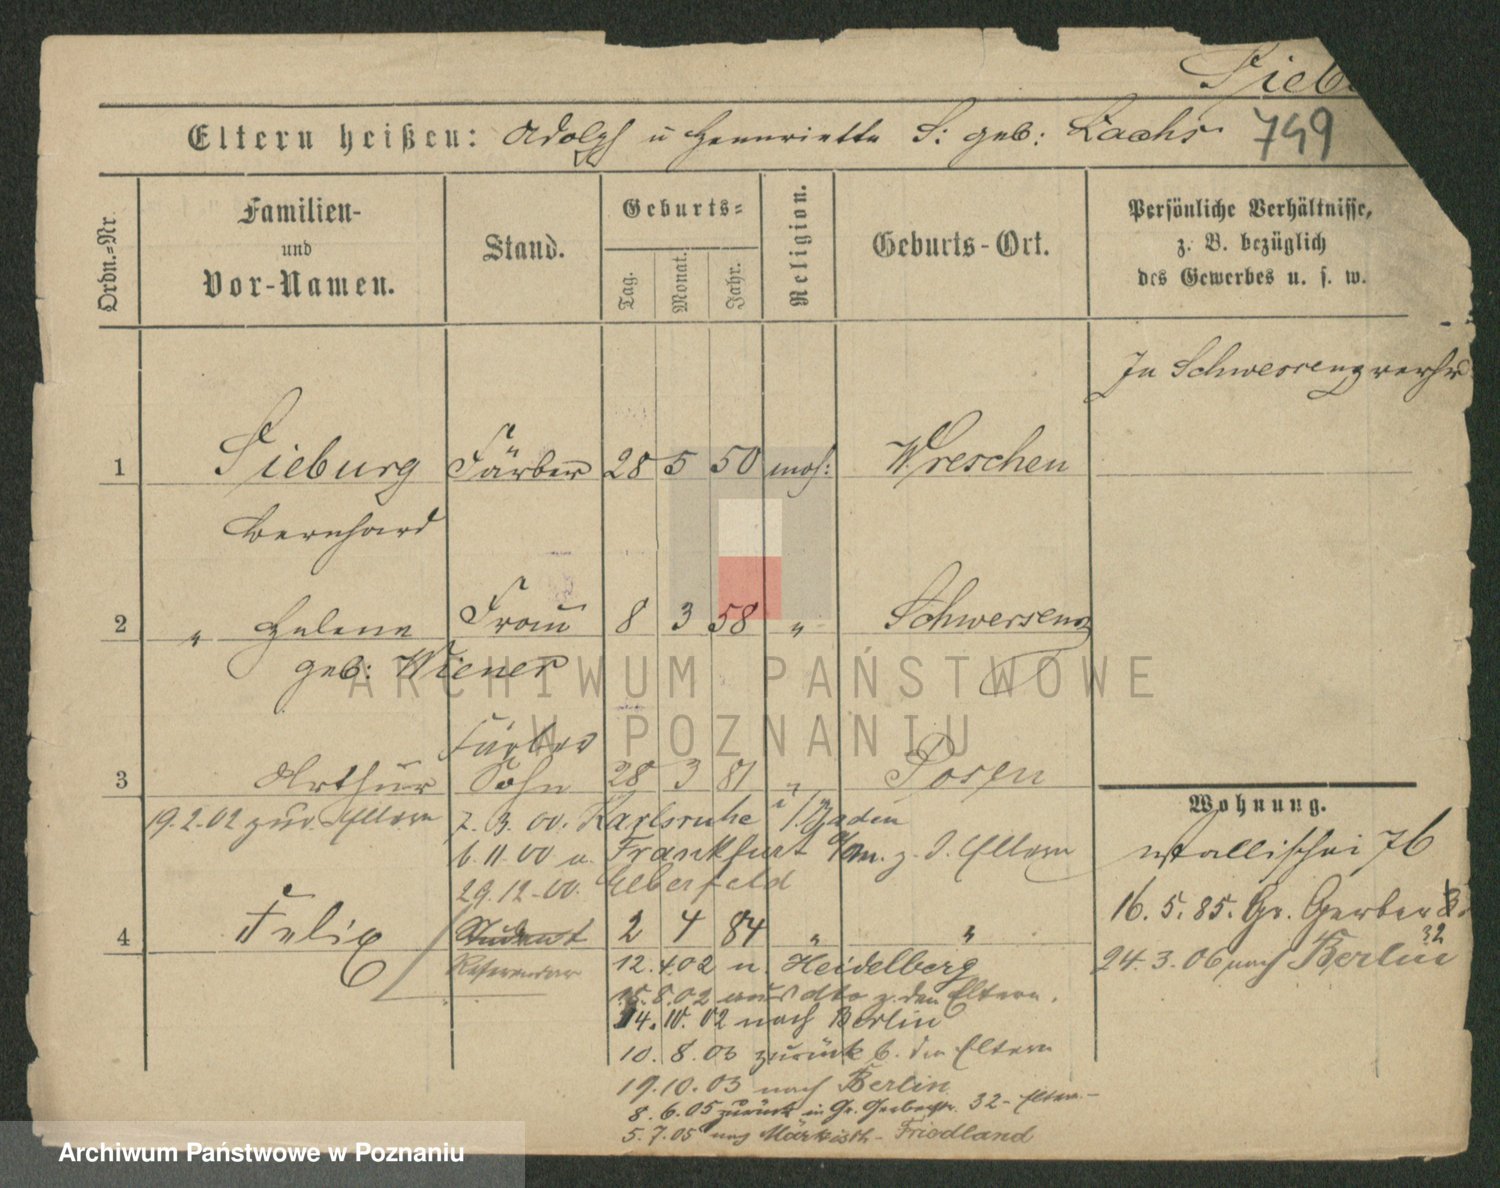 Sieb
Eltern heißen: Adolph u Hennriette S: geb: Lachs 749
Ordn.-Nr.
Familien-
und
Vor-Namen.
Stand.
Geburts-
Tag.
Monat.
Jahr.
Religion.
Geburts-Ort.
Persönliche Verhältnisse,
z. B. bezüglich
des Gewerbes u. s. w.
In Schwersenz verh
1 Sieburg Färber 28 5 50 mos: Wreschen
Bernhard
2 " Helene Frau 8 3 58 " Schwersenz
geb: Wiener
Färber
3 Arthur Sohn 28 3 81 " Posen
19.2.02 zur. Eltern 7. 3. 00. Karlsruhe i/Baden
6. 11. 00 a. Frankfurt a/m. z. d. Eltern
29. 12. 00. Elberfeld
4 Felix Student 2 4 84 " "
Referendar
12. 4. 02 n. Heidelberg
15. 8. 02 aus dto z. den Eltern.
14. 10. 02 nach Berlin
10. 8. 03 zurück b. den Eltern
19. 10. 03 nach Berlin
8. 6. 05 zurück in Gr. Gerberstr. 32 - Eltern -
5. 7. 05 nach Märkisch-Friedland
Wohnung.
Wallischei 76
16. 5. 85. Gr. Gerber
32
24. 3. 06 nach Berlin
ARCHIWUM PAŃSTWOWE
W POZNANIU
Archiwum Państwowe w Poznaniu